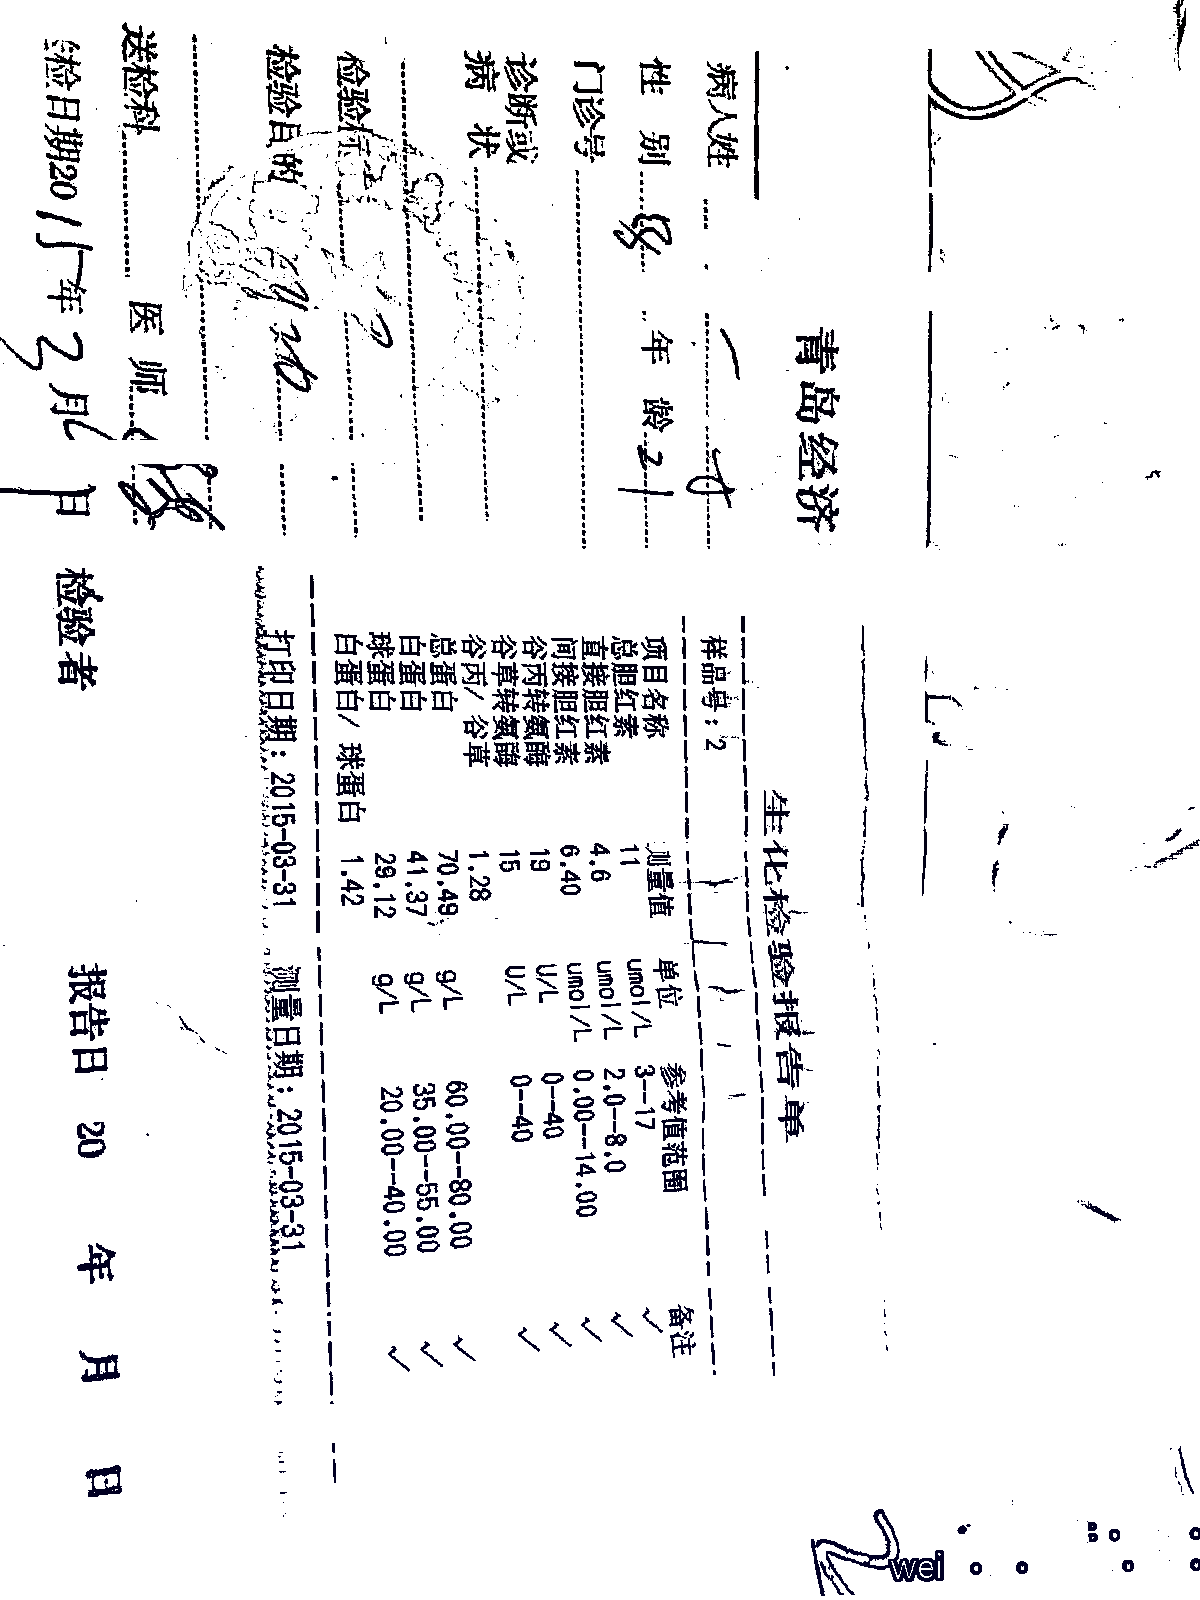 青岛经济
病人姓
性 别 年 龄 21
门诊号
诊断或
病 状
检验标
检验目的
送检科 医 师
送检日期2015年3月 日
生化检验报告单
样品号：2
项目名称 测量值 单位 参考值范围 备注
总胆红素 11 umol/L 3--17 ✓
直接胆红素 4.6 umol/L 2.0--8.0 ✓
间接胆红素 6.40 umol/L 0.00--14.00 ✓
谷丙转氨酶 19 U/L 0--40 ✓
谷草转氨酶 15 U/L 0--40 ✓
谷丙/ 谷草 1.28
总蛋白 70.49 g/L 60.00--80.00 ✓
白蛋白 41.37 g/L 35.00--55.00 ✓
球蛋白 29.12 g/L 20.00--40.00 ✓
白蛋白/ 球蛋白 1.42
打印日期：2015-03-31 测量日期：2015-03-31
检验者 报告日 20 年 月 日
wei